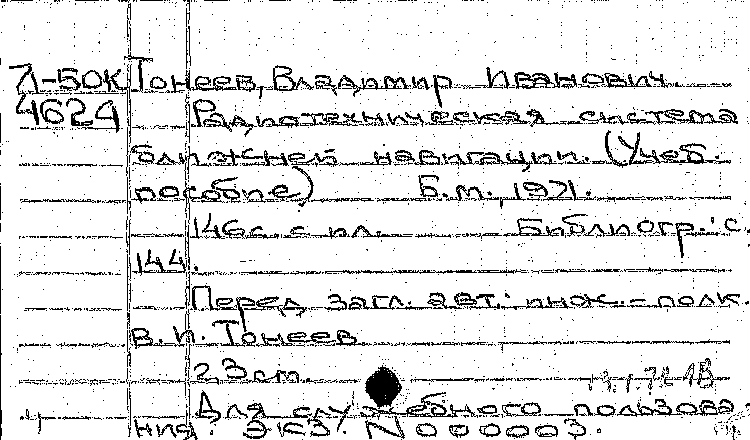 Л-50К Тонеев, Владимир Иванович.
4624 Радиотехническая система
ближней навигации. (Учеб.
пособие) Б.м., 1971.
146с. с ил. Библиогр.: с.
144.
Перед загл. авт.: инж.-полк.
В.И. Тонеев
23 см.
Для служебного пользова-
ния. Экз. N 000003.